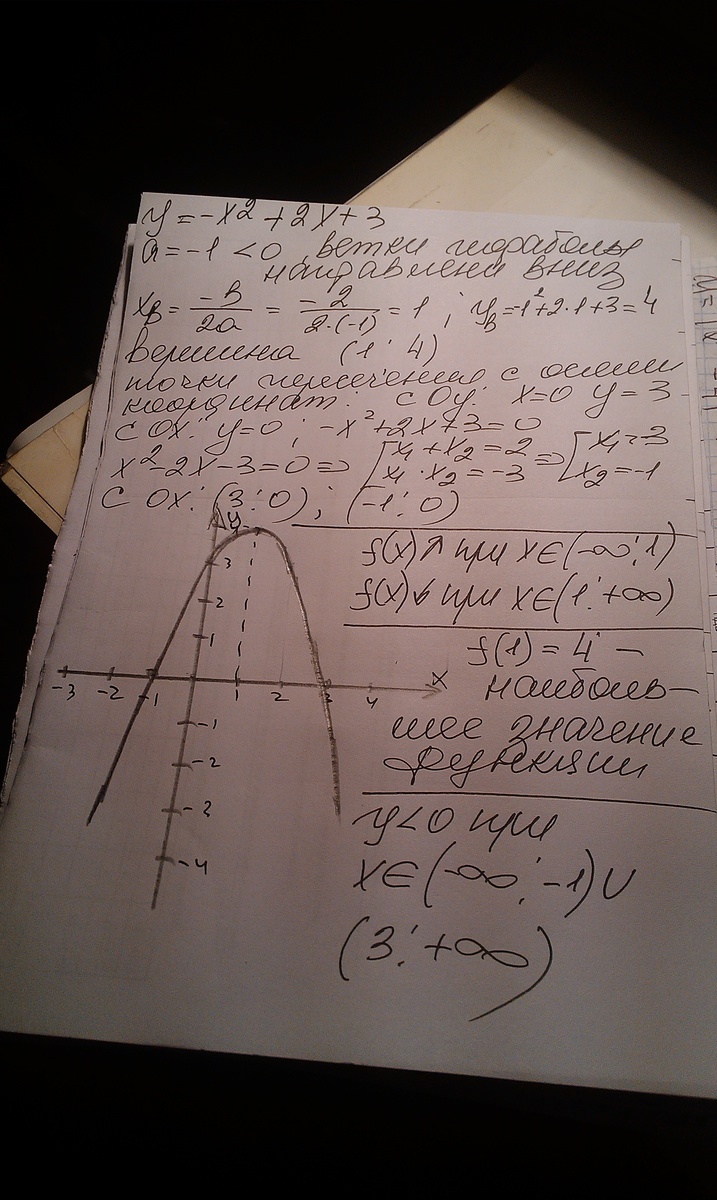 y = -x² + 2x + 3
a = -1 < 0, ветки параболы
направлени вниз
xв = -в/2a = -2/2·(-1) = 1 ; yв = -1² + 2·1 + 3 = 4
вершина (1; 4)
точки пересечения с осями
координат: с Oy: x=0 y=3
с Ox: y=0; -x² + 2x + 3 = 0
x² - 2x - 3 = 0 => [x₁ + x₂ = 2 x₁ · x₂ = -3 => [x₁ = 3 x₂ = -1
с Ox: (3; 0); (-1; 0)
f(x)↗ при x∈(-∞; 1)
f(x)↘ при x∈(1; +∞)
f(1) = 4 –
наиболь-
шее значение
функции
y<0 при
x∈(-∞; -1)∪
(3; +∞)
y
3
2
1
-3 -2 -1 1 2 3 4 x
-1
-2
-3
-4